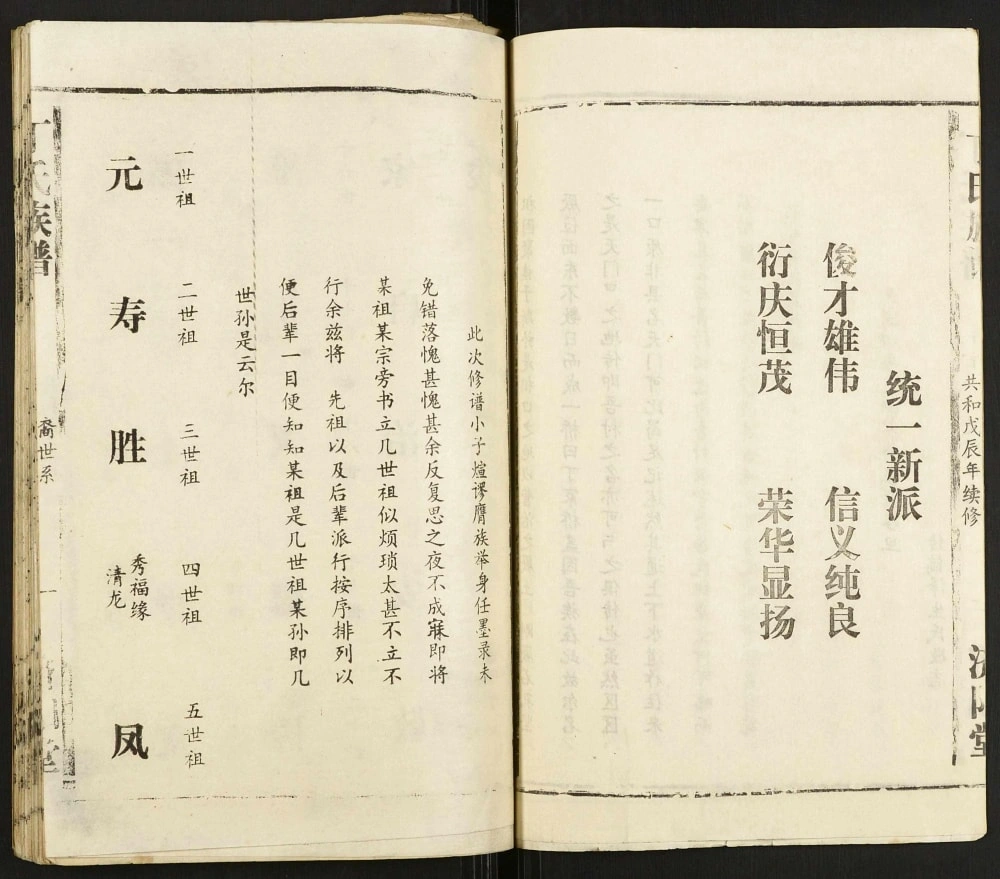 共和戊辰年续修
济阳堂
统一新派
俊才雄伟 信义纯良
衍庆恒茂 荣华显扬
此次修谱小子煊谬膺族举身任墨录未
免错落愧甚愧甚余反复思之夜不成寐即将
某祖某宗旁书立几世祖似烦琐太甚不立不
行余兹将 先祖以及后辈派行按序排列以
便后辈一目便知知某祖是几世祖某孙即几
世孙是云尔
一世祖 二世祖 三世祖 四世祖 五世祖
元 寿 胜 秀福缘 凤
清龙
丁氏族谱
裔世系
一